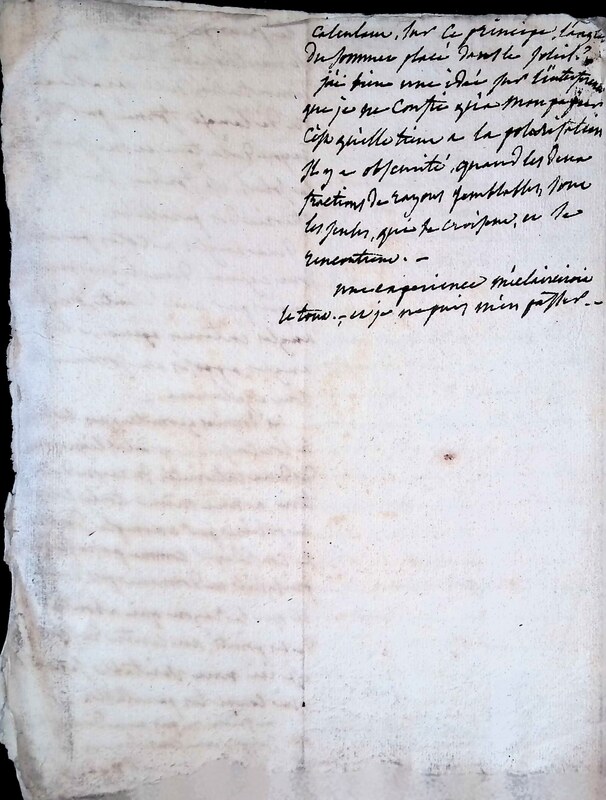 calculant, sur ce principe, l'angle
du sommet placé dans le soleil?
j'ai bien une idée sur l'interférence
que je ne confie qu'à mon papier
c'est qu'elle tient a la polarisation
Il y a obscurité, quand les deux
fractions de rayons semblables, sont
les seules, qui se croisent, et se
rencontrent. —
une expérience m'eclaireroit
le tout. — et je ne puis m'en passer. —